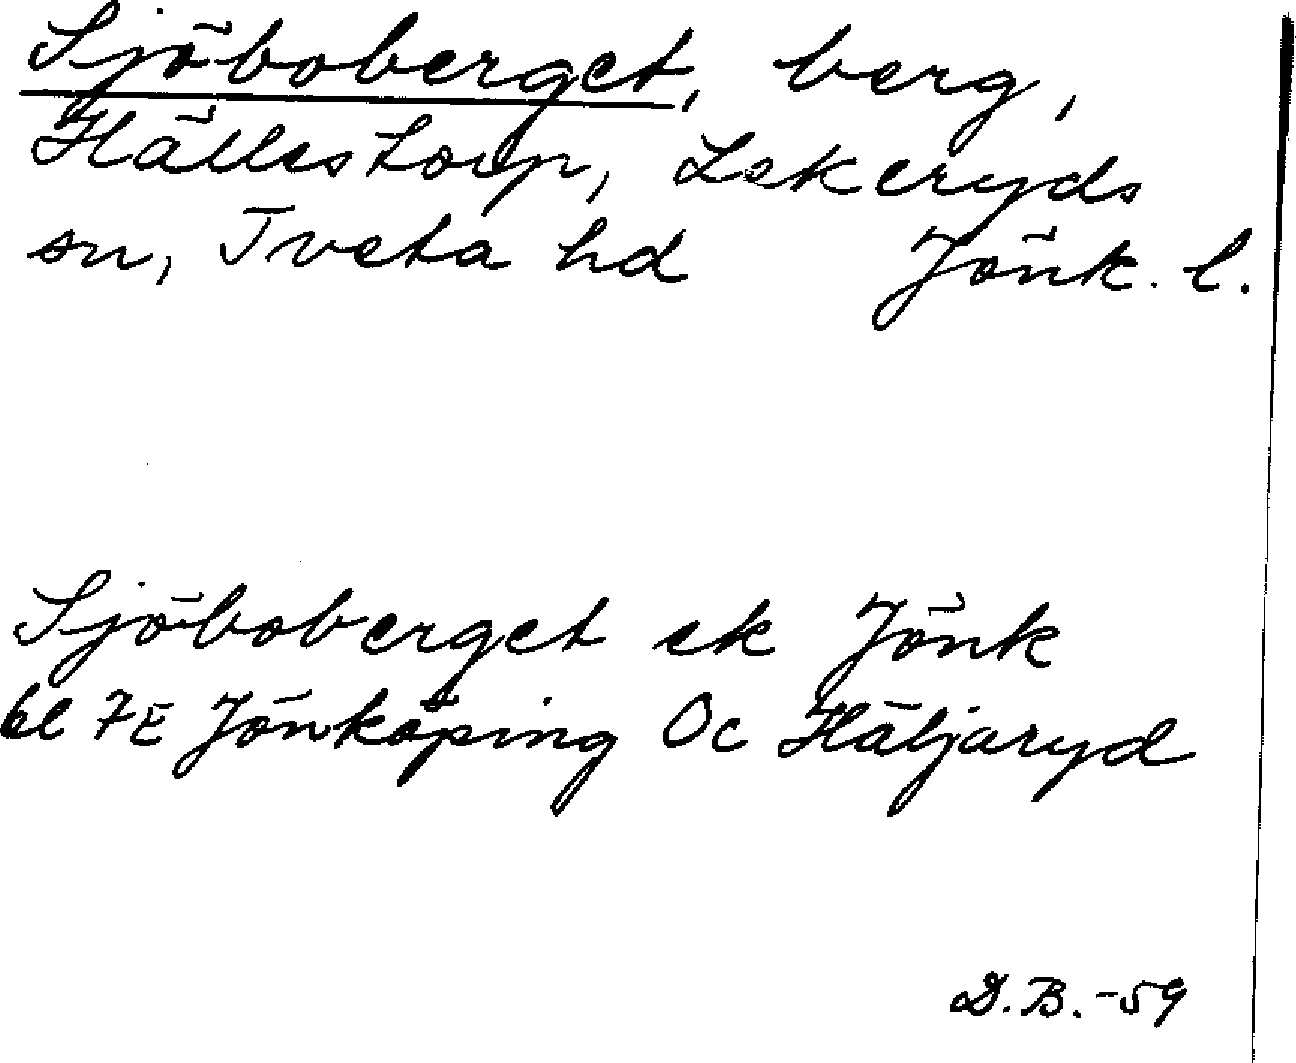 Sjöboberget, berg,
Hällstorp, Lekeryds
sn, Tveta hd Jönk. l.
Sjöboberget ek Jönk
bl 7E Jönköping Oc Häljaryd
D.B.-59